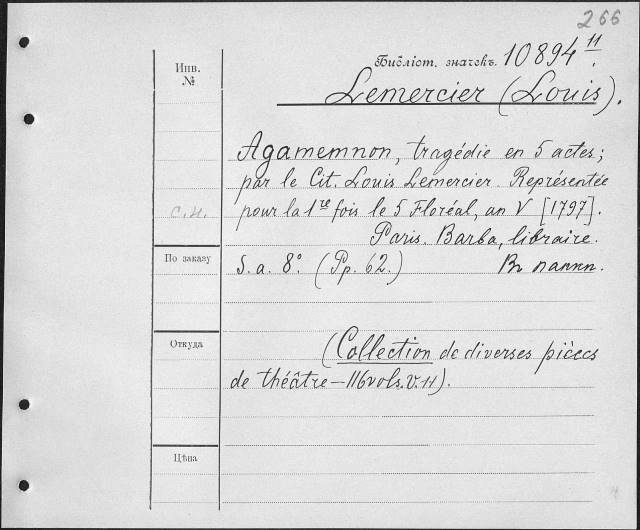 266
Инв.
№
Библіот. значекъ. 10894 11.
Lemercier (Louis).
Agamemnon, tragédie en 5 actes;
par le Cit. Louis Lemercier. Représentée
С.И. pour la 1re fois le 5 Floréal, an V [1797].
Paris. Barba, libraire.
По заказу S.a. 8°. (Pp. 62.) Въ папкѣ.
Откуда (Collection de diverses pièces
de théâtre — 116 vols. V. 11).
Цѣна